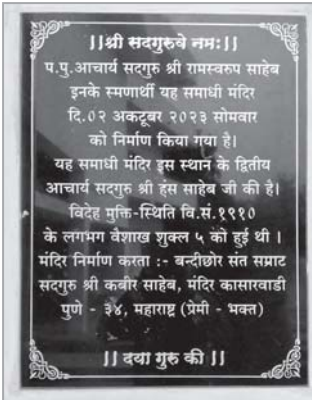 ||श्री सदगुरुवे नमः||
प.पु.आचार्य सदगुरु श्री रामस्वरुप साहेब
इनके स्मणार्थी यह समाधी मंदिर
दि.०२ अकटूबर २०२३ सोमवार
को निर्माण किया गया है।
यह समाधी मंदिर इस स्थान के द्वितीय
आचार्य सदगुरु श्री हंस साहेब जी की है।
विदेह मुक्ति-स्थिति वि.सं.१९१०
के लगभग वैशाख शुक्ल ५ को हुई थी ।
मंदिर निर्माण करता :- बन्दीछोर संत सम्राट
सदगुरु श्री कबीर साहेब, मंदिर कासारवाडी
पुणे - ३४, महाराष्ट्र (प्रेमी - भक्त)
|| दया गुरु की ||